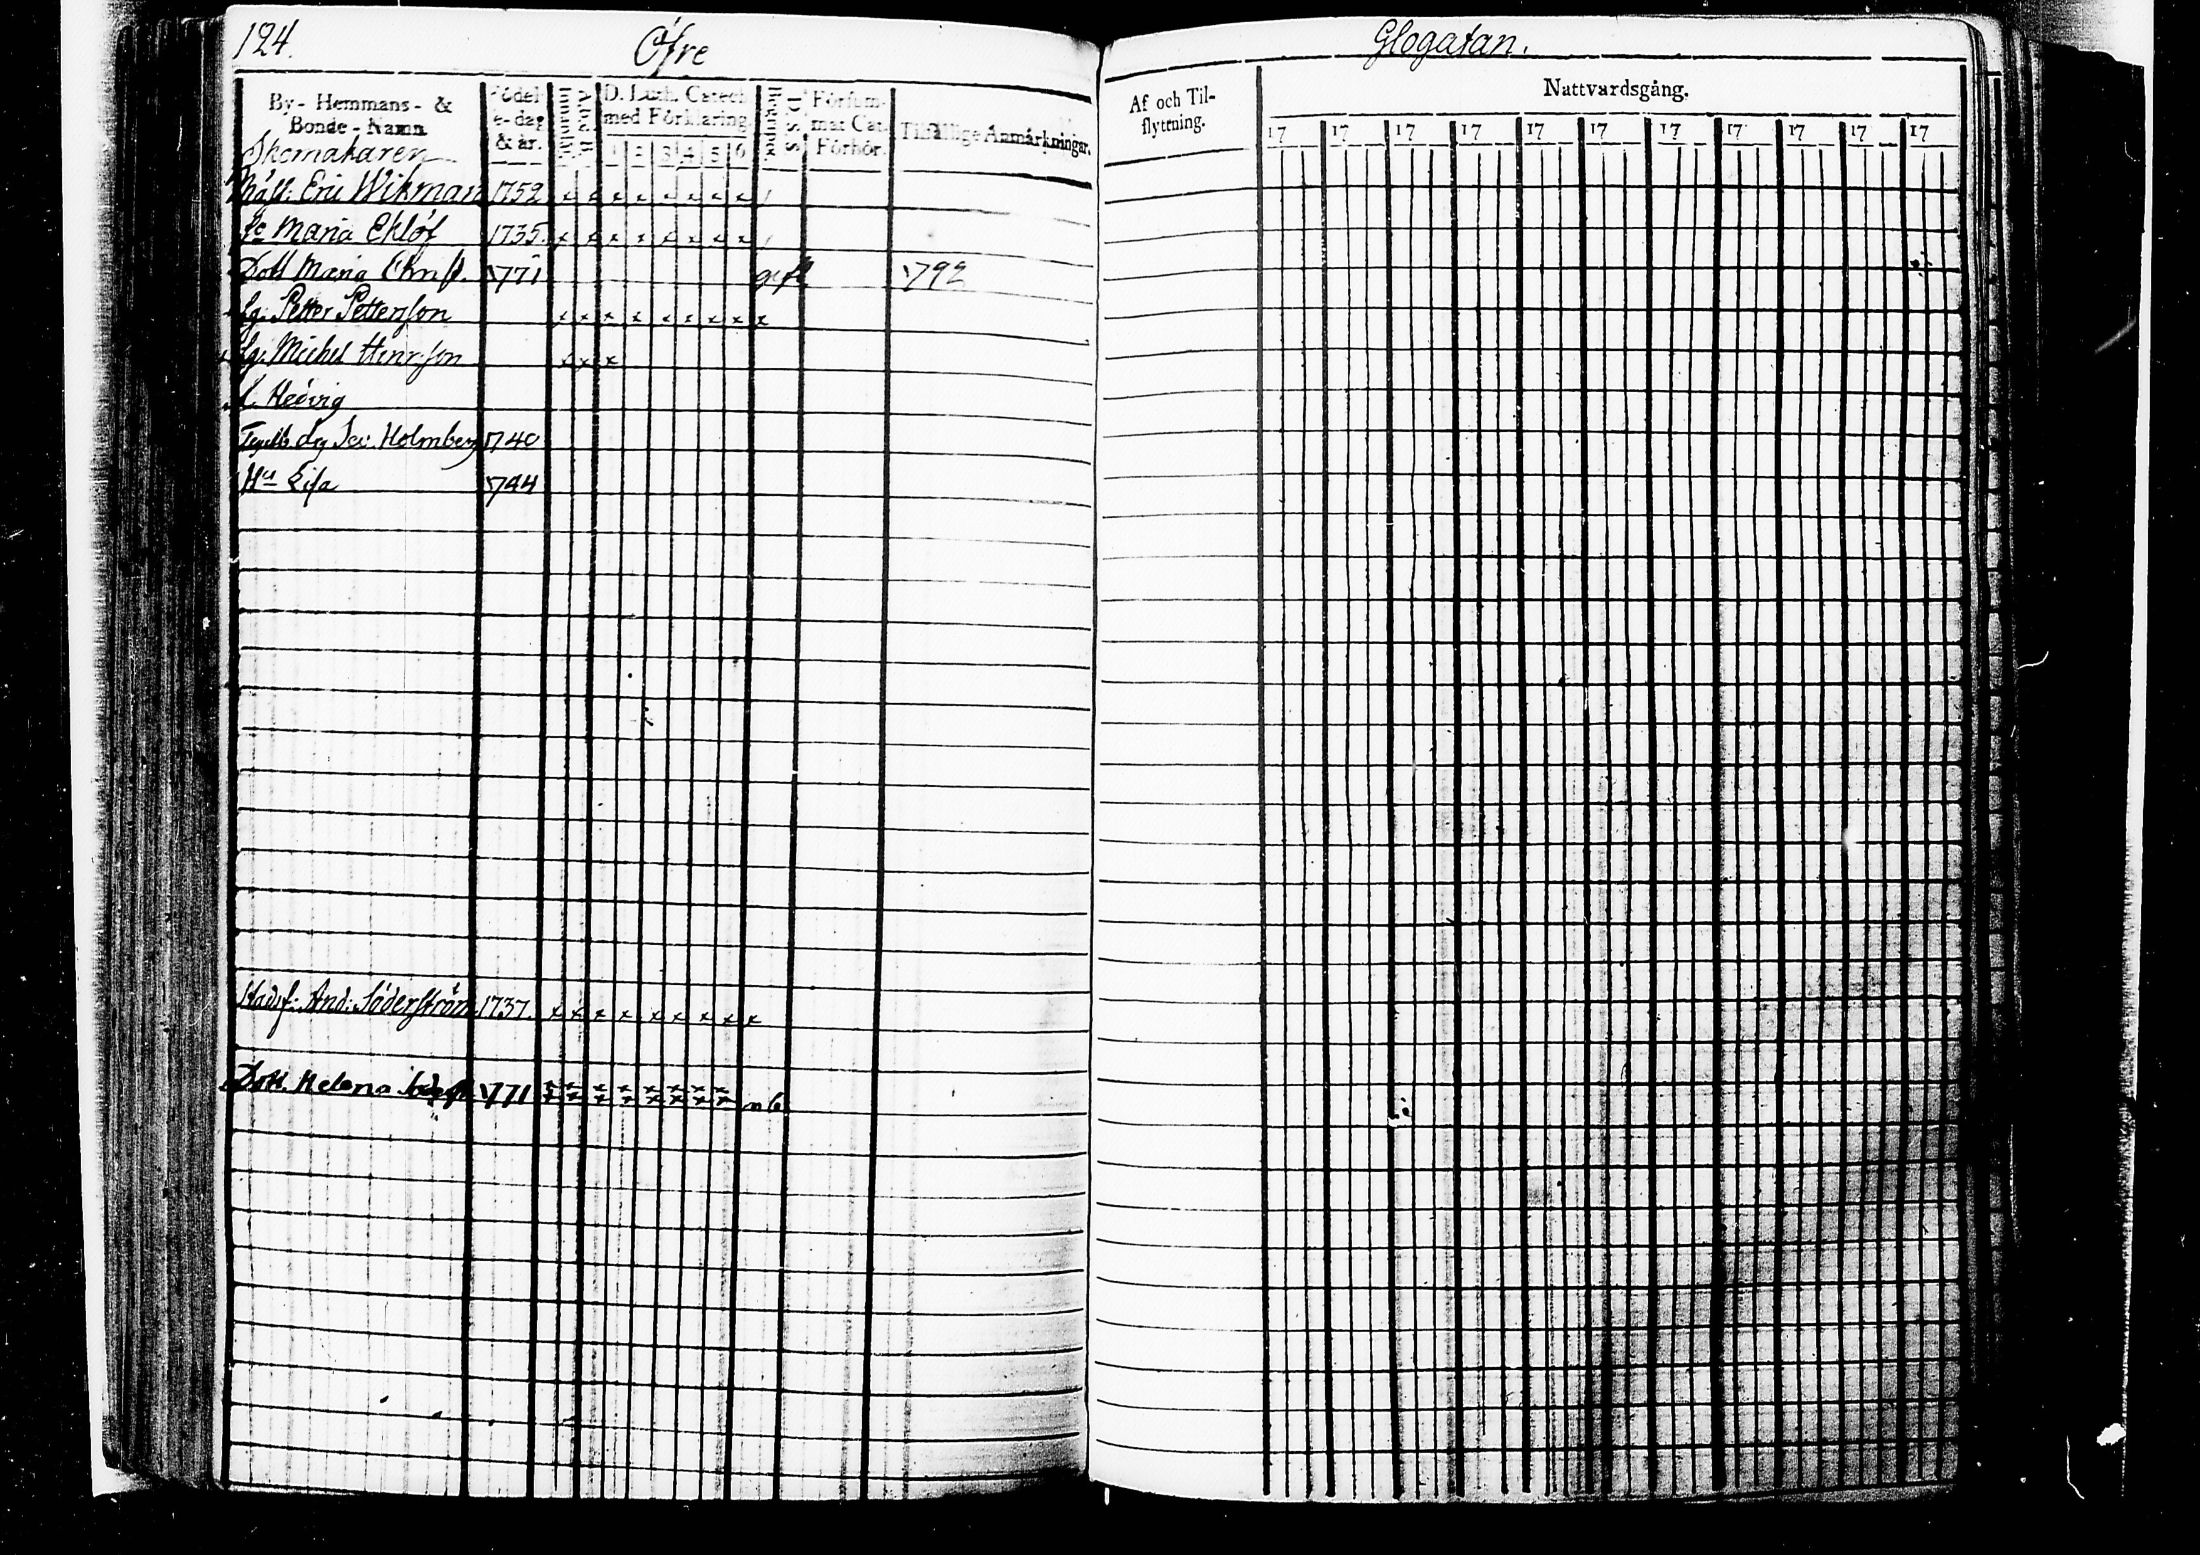 124. Öfre Glogatan.
By- Hemmans- & Bonde-Namn
Födelse-dag & år.
Innanläs.
A.B.C.B.
D. Luth. Catech. med Förklaring.
1 2 3 4 5 6
D.S.S. Begrepet.
Försummat Cat. Förhör.
Tilfällige Anmärkningar.
Af och Tilflyttning.
Nattvardsgång.
17 17 17 17 17 17 17 17 17 17 17
Skomakaren
Mäst: Eric Wikman 1752 x x x x x x x x /
Maria Eklöf 1735. x x x x x x x x /
Dott Maria Christ. 1771 gift 1792
Lg: Petter Petterson x x x x x x x x x
Lg: Michel Hinrson x x x
Hedvig
Holmberg 1740
Hu Lisa 1744
Stadsf: And: Söderström 1737. x x x x x x x x x
Dott. Helena 1771 x x x x x x x x
x x x x x x x x n b